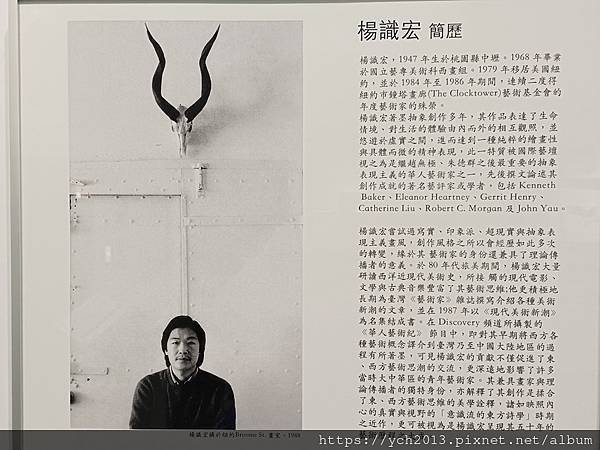 楊識宏 簡歷
楊識宏，1947 年生於桃園縣中壢。1968 年畢業
於國立藝專美術科西畫組。1979 年移居美國紐
約，並於 1984 年至 1986 年期間，連續二度得
紐約市鐘塔畫廊(The Clocktower)藝術基金會的
年度藝術家的殊榮。
楊識宏著墨抽象創作多年，其作品表達了生命
情境、對生活的體驗由內而外的相互觀照，並
悠遊於虛實之間，進而達到一種純粹的繪畫性
與具體而微的精神表現，此一特質被國際藝壇
視之為是繼趙無極、朱德群之後最重要的抽象
表現主義的華人藝術家之一，先後撰文論述其
創作成就的著名藝評家或學者，包括 Kenneth
Baker、Eleanor Heartney、Gerrit Henry、
Catherine Liu、Robert C. Morgan 及 John Yau。
楊識宏嘗試過寫實、印象派、超現實與抽象表
現主義畫風，創作風格之所以會經歷如此多次
的轉變，緣於其 藝術家的身份還兼具了理論傳
播者的意義。於 80 年代旅美期間，楊識宏大量
研讀西洋近現代美術史，所接 觸的現代電影、
文學與古典音樂豐富了其藝術思維;他更積極地
長期為臺灣《藝術家》雜誌撰寫介紹各種美術
新潮的文章，並在 1987 年以《現代美術新潮》
為名集結成書。在 Discovery 頻道所攝製的
《華人藝術紀》 節目中，即對其早將西方各
種藝術概念譯介到臺灣乃至中國大陸地區的過
程有所著墨，可見楊識宏的貢獻不僅促進了東
、西方藝術思潮的交流，更深遠地影響了許多
當時大中華區的青年藝術家。其兼具畫家與理
論傳播者的獨特身份，亦解釋了其創作是揉合
了東、西方藝術思維的美學詮釋，諸如映照內
心的真實與視野的「意識流的東方詩學」時期
之近作，更可被視為是楊識宏呈現其五十年的
楊識宏攝於紐約Broome St. 畫室，1988
https://ych2013.pixnet.net/album